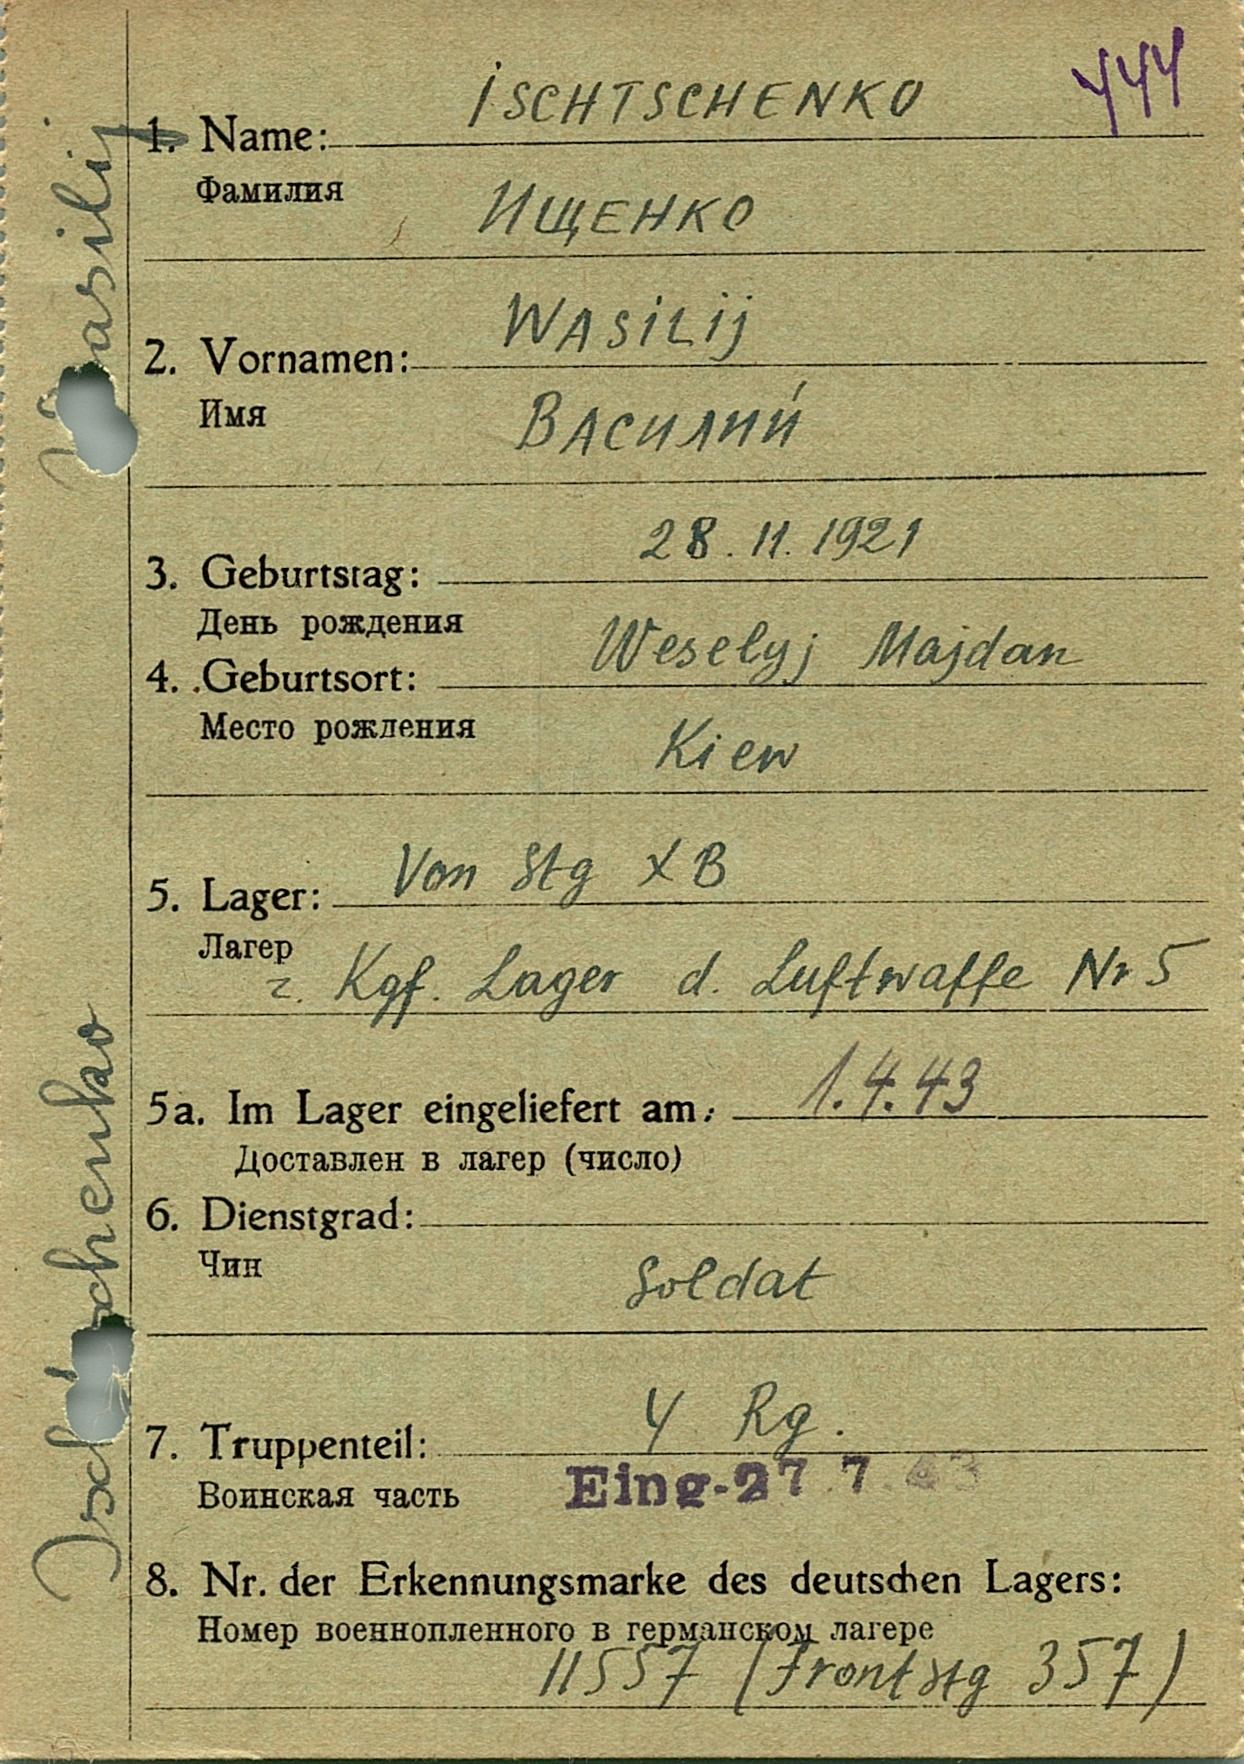 444
ISCHTSCHENKO
1. Name:
Фамилия
ИЩЕНКО
WASILIJ
2. Vornamen:
Имя
ВАСИЛИЙ
28. 11. 1921
3. Geburtstag:
День рождения
Weselyj Majdan
4. Geburtsort:
Место рождения
Kiew
Von Stg X B
5. Lager:
Лагер
z. Kgf. Lager d. Luftwaffe Nr 5
5a. Im Lager eingeliefert am: 1.4.43
Доставлен в лагер (число)
6. Dienstgrad:
Чин
Soldat
4 Rg.
7. Truppenteil:
Воинская часть
Eing-27.7.43
8. Nr. der Erkennungsmarke des deutschen Lagers:
Номер военнопленного в германском лагере
11557 (Frontstg 357)
Ischtschenko Wasilij